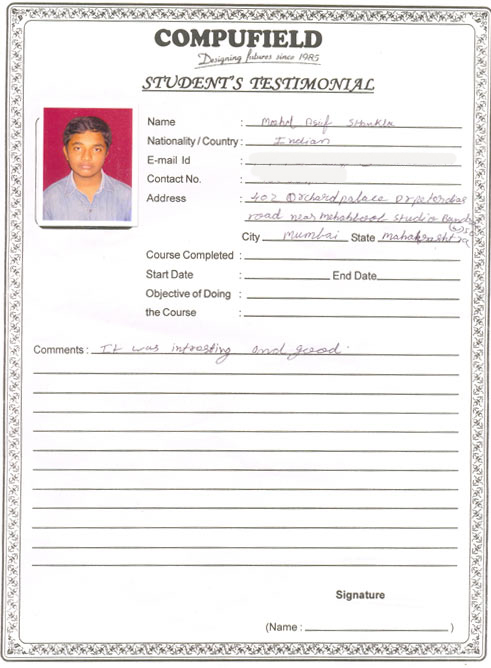 COMPUFIELD
Designing futures since 1985
STUDENT'S TESTIMONIAL
Name : Mohd Asif
Nationality / Country : Indian
E-mail Id :
Contact No. :
Address : 402 Orchard palace Dr peter dias
road near mehboob studio Band
(W)
City Mumbai State Maharashtra
Course Completed :
Start Date : End Date
Objective of Doing :
the Course :
Comments : It was introsting and good.
Signature
(Name : )